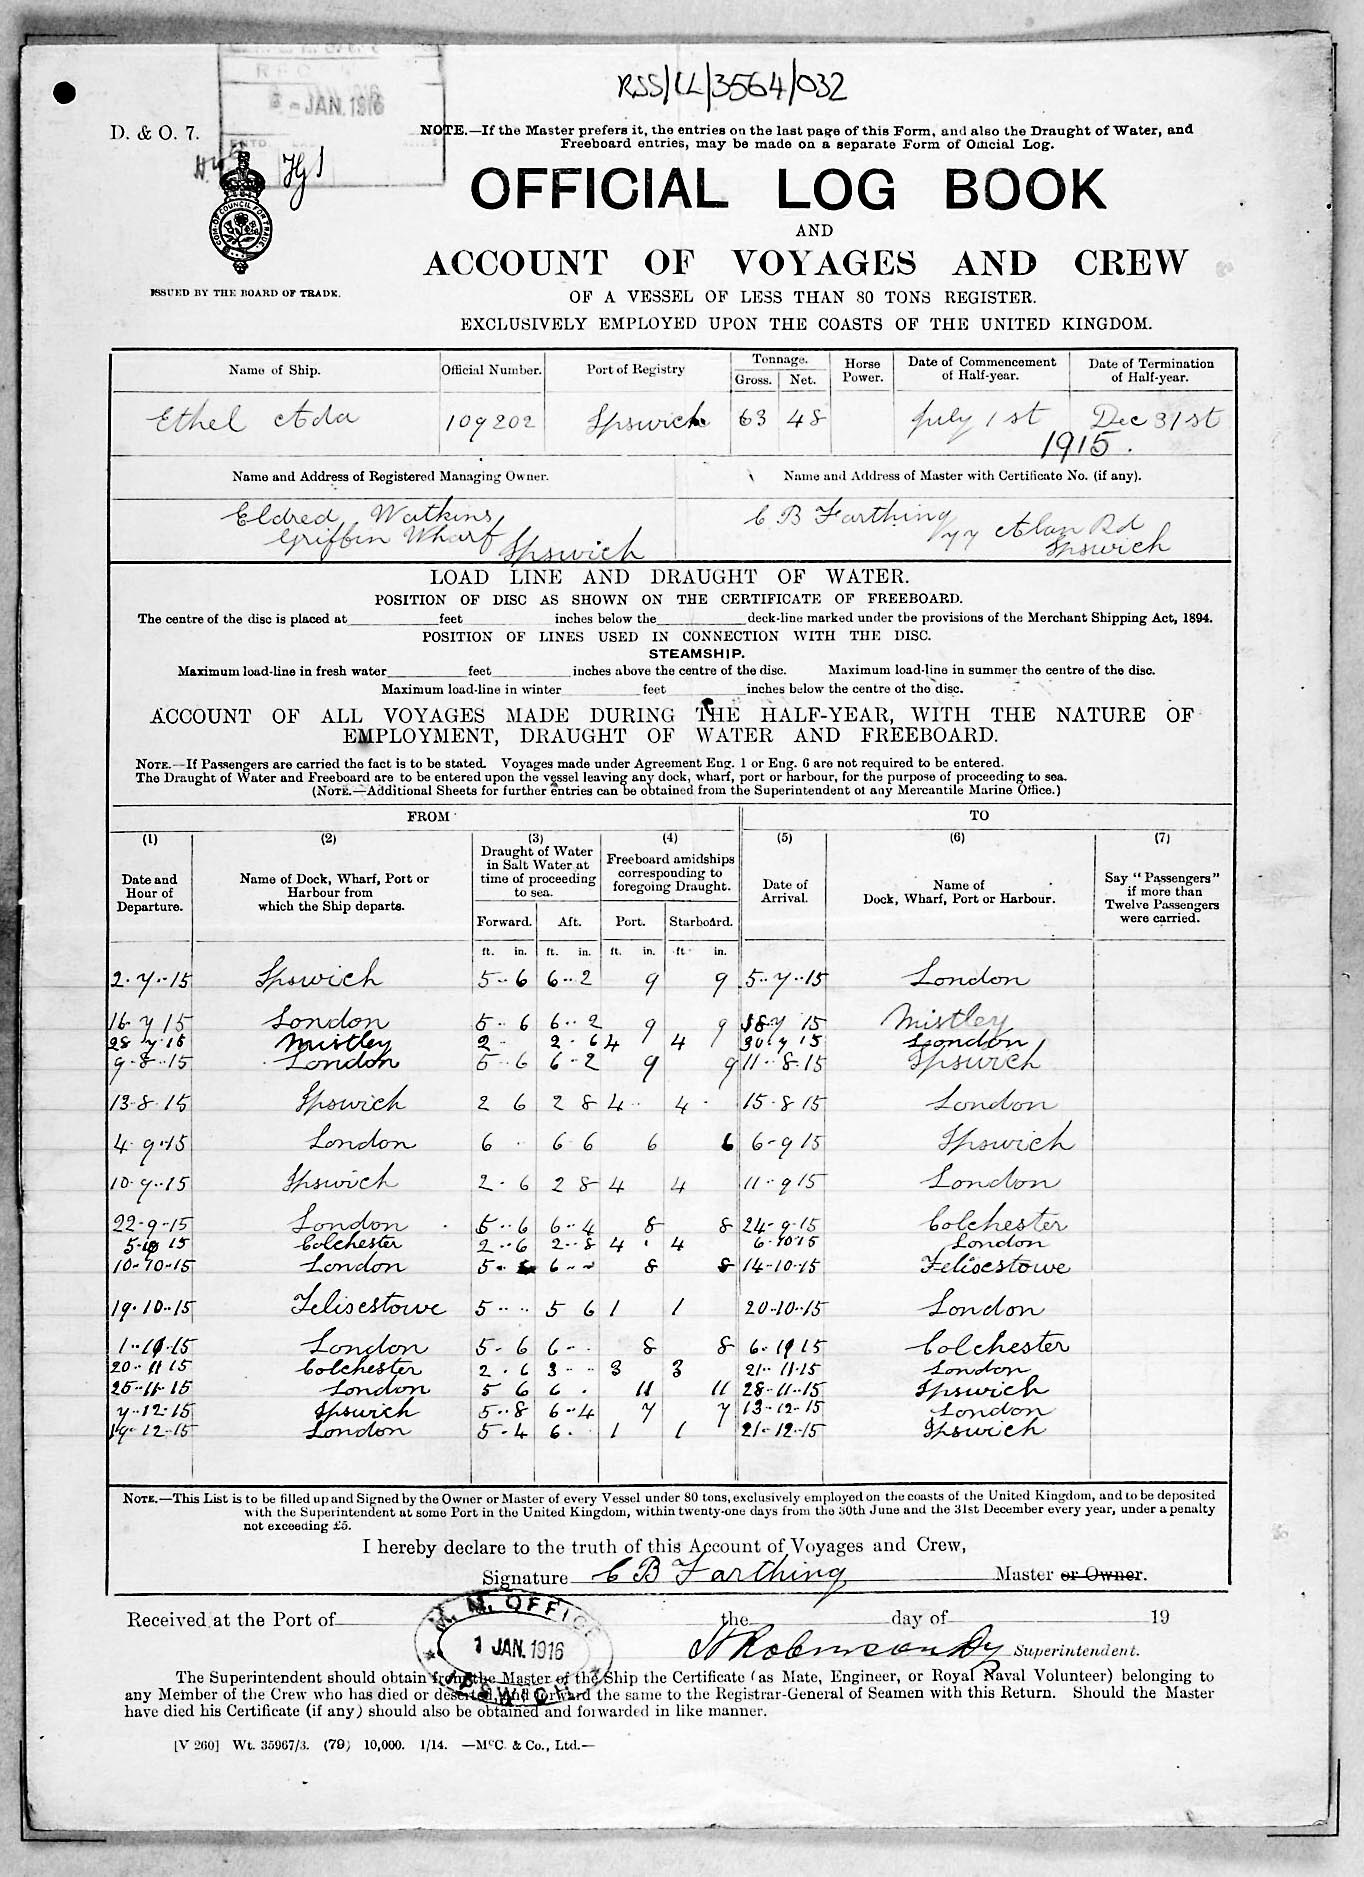 RSS/CL/3564/032
JAN. 1916
D. & O. 7.
NOTE.—If the Master prefers it, the entries on the last page of this Form, and also the Draught of Water, and
Freeboard entries, may be made on a separate Form of Official Log.
OFFICIAL LOG BOOK
AND
ACCOUNT OF VOYAGES AND CREW
ISSUED BY THE BOARD OF TRADE.
OF A VESSEL OF LESS THAN 80 TONS REGISTER.
EXCLUSIVELY EMPLOYED UPON THE COASTS OF THE UNITED KINGDOM.
Name of Ship. Official Number. Port of Registry Tonnage. Gross. Net. Horse Power. Date of Commencement of Half-year. Date of Termination of Half-year.
Ethel Ada 109202 Ipswich 63 48 July 1st Dec 31st
1915.
Name and Address of Registered Managing Owner. Name and Address of Master with Certificate No. (if any).
Eldred Watkins C B Farthing
Griffin Wharf 77 Alan Rd
Ipswich Ipswich
LOAD LINE AND DRAUGHT OF WATER.
POSITION OF DISC AS SHOWN ON THE CERTIFICATE OF FREEBOARD.
The centre of the disc is placed at feet inches below the deck-line marked under the provisions of the Merchant Shipping Act, 1894.
POSITION OF LINES USED IN CONNECTION WITH THE DISC.
STEAMSHIP.
Maximum load-line in fresh water feet inches above the centre of the disc. Maximum load-line in summer the centre of the disc.
Maximum load-line in winter feet inches below the centre of the disc.
ACCOUNT OF ALL VOYAGES MADE DURING THE HALF-YEAR, WITH THE NATURE OF
EMPLOYMENT, DRAUGHT OF WATER AND FREEBOARD.
NOTE.—If Passengers are carried the fact is to be stated. Voyages made under Agreement Eng. 1 or Eng. 6 are not required to be entered.
The Draught of Water and Freeboard are to be entered upon the vessel leaving any dock, wharf, port or harbour, for the purpose of proceeding to sea.
(NOTE.—Additional Sheets for further entries can be obtained from the Superintendent of any Mercantile Marine Office.)
FROM TO
(1) (2) (3) (4) (5) (6) (7)
Date and Hour of Departure. Name of Dock, Wharf, Port or Harbour from which the Ship departs. Draught of Water in Salt Water at time of proceeding to sea. Freeboard amidships corresponding to foregoing Draught. Date of Arrival. Name of Dock, Wharf, Port or Harbour. Say "Passengers" if more than Twelve Passengers were carried.
Forward. Aft. Port. Starboard.
ft. in. ft. in. ft. in. ft in.
2.7.15 Ipswich 5 6 6 2 9 9 5.7.15 London
16 7 15 London 5 6 6 2 9 9 18 7 15 Mistley
28 7 15 Mistley 2 2 6 4 4 30 7 15 London
9-8-15 London 5 6 6 2 9 9 11-8-15 Ipswich
13-8-15 Ipswich 2 6 2 8 4 4 15-8-15 London
4-9-15 London 6 6 6 6 6 6-9-15 Ipswich
10-9-15 Ipswich 2 6 2 8 4 4 11-9-15 London
22-9-15 London 5 6 6 4 8 8 24-9-15 Colchester
5-10 15 Colchester 2 6 2 8 4 4 6-10-15 London
10-10-15 London 5 6 6 8 8 14-10-15 Felixestowe
19-10-15 Felixestowe 5 5 6 1 1 20-10-15 London
1-11-15 London 5 6 6 8 8 6-11 15 Colchester
20-11 15 Colchester 2 6 3 3 3 21-11-15 London
25-11-15 London 5 6 6 11 11 28-11-15 Ipswich
7-12-15 Ipswich 5 8 6 4 7 7 13-12-15 London
19-12-15 London 5 4 6 1 1 21-12-15 Ipswich
NOTE.—This List is to be filled up and Signed by the Owner or Master of every Vessel under 80 tons, exclusively employed on the coasts of the United Kingdom, and to be deposited
with the Superintendent at some Port in the United Kingdom, within twenty-one days from the 30th June and the 31st December every year, under a penalty
not exceeding £5.
I hereby declare to the truth of this Account of Voyages and Crew,
Signature C B Farthing Master or Owner.
M. M. OFFICE
1 JAN. 1916
IPSWICH
Received at the Port of the day of 19
Robinson Superintendent.
The Superintendent should obtain from the Master of the Ship the Certificate (as Mate, Engineer, or Royal Naval Volunteer) belonging to
any Member of the Crew who has died or deserted, and forward the same to the Registrar-General of Seamen with this Return. Should the Master
have died his Certificate (if any) should also be obtained and forwarded in like manner.
[V 260] Wt. 35967/3. (79) 10,000. 1/14. —McC. & Co., Ltd.—